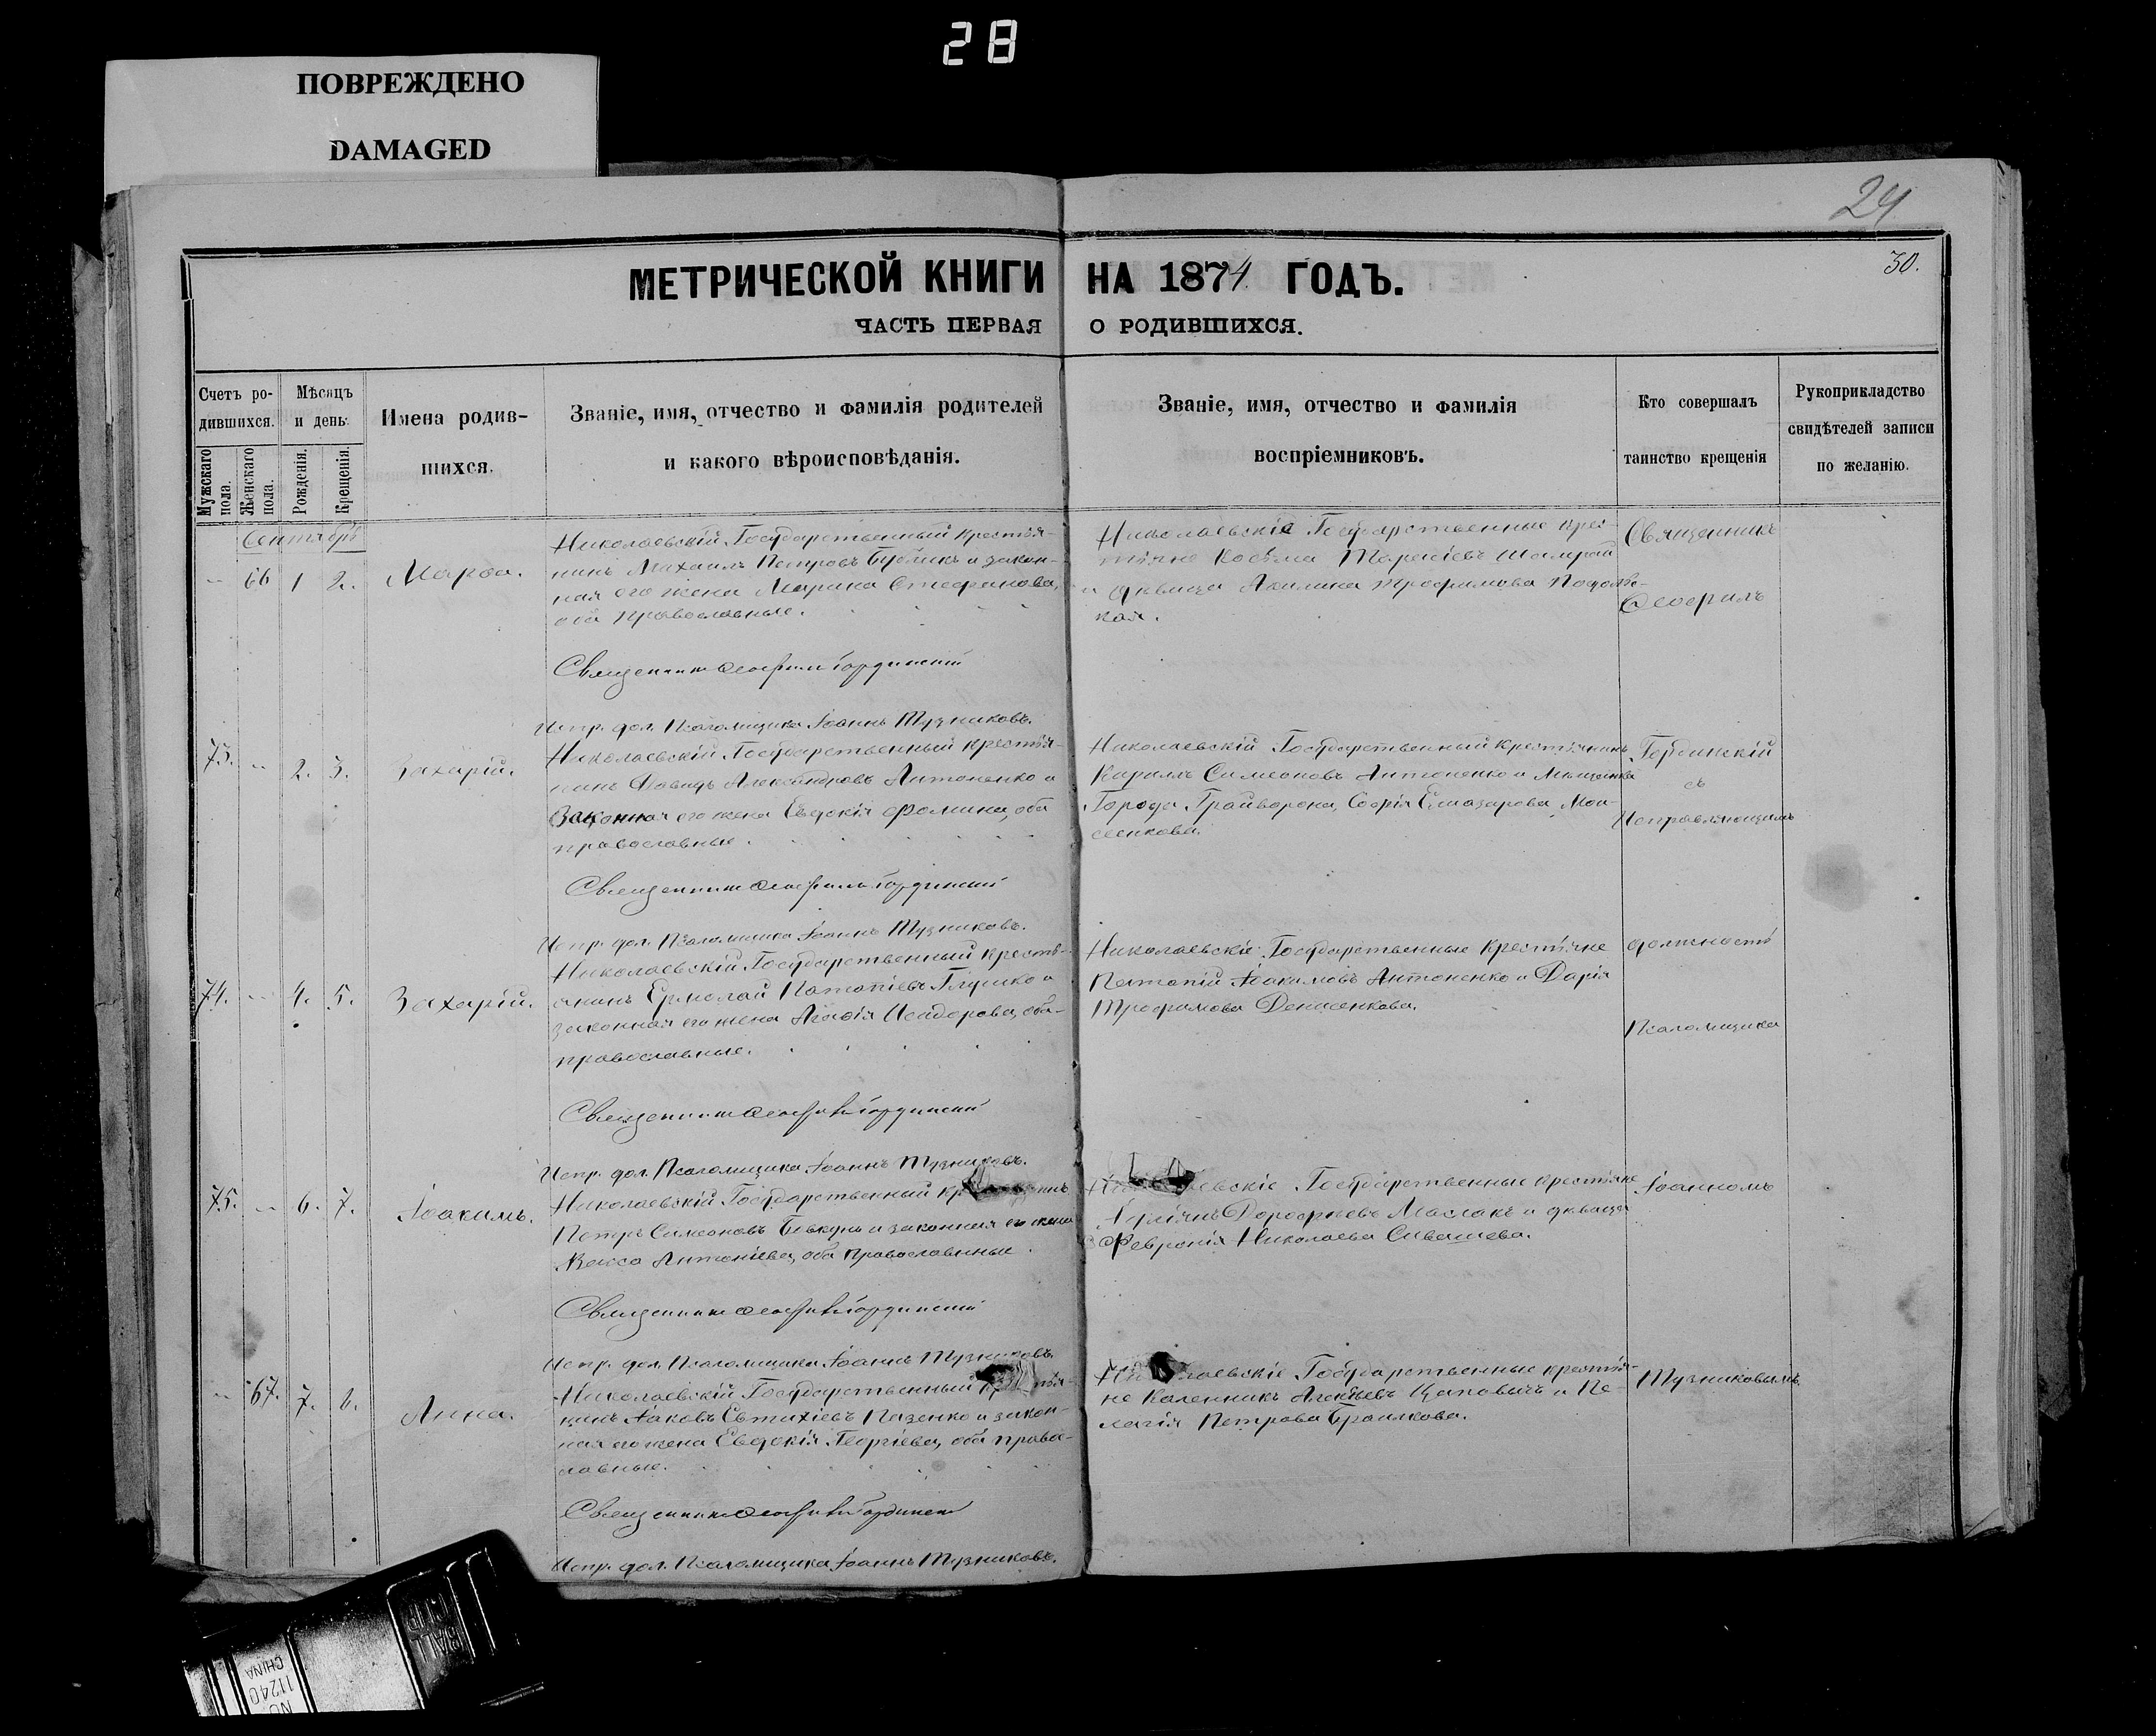 28
ПОВРЕЖДЕНО
DAMAGED
24
30.
МЕТРИЧЕСКОЙ КНИГИ НА 1874 ГОДЪ.
ЧАСТЬ ПЕРВАЯ О РОДИВШИХСЯ.
Счетъ ро-
дившихся.
Мужскаго пола.
Женскаго пола.
Мѣсяцъ
и день.
Рожденія.
Крещенія.
Имена родив-
шихся.
Званіе, имя, отчество и фамилія родителей
и какого вѣроисповѣданія.
Званіе, имя, отчество и фамилія
воспріемниковъ.
Кто совершалъ
таинство крещенія
Рукоприкладство
свидѣтелей записи
по желанію.
Сентябрь
66 1 2. Марѳа.
Николаевскій Государственный крестья-
нинъ Михаилъ Петровъ Бублик и закон-
ная его жена Марина Стефанова,
оба православные.
Николаевскіе Государственные крес-
тьяне Косьма Тарасіевъ
и дѣвица Акилина Трофимова Подоль-
кая.
Священникъ
Ѳеофилъ
Священникъ Ѳеофилъ Гординскій
Испр. дол. Псаломщика Іоаннъ Тузниковъ.
73. -- 2. 3. Захарій.
Николаевскій Государственный крестья-
нинъ Давидъ Александровъ Антоненко и
Законная его жена Евдокія Фомина, оба
православные.
Николаевскій Государственный крестьянинъ
Кирилъ Симеоновъ Антоненко и Мѣщанка
Города Грайворона, Софія Елиазарова Мои-
сеенкова.
Гординскій
съ
Исправляющимъ
Священникъ Ѳеофилъ Гординскій
Испр. дол. Псаломщика Іоаннъ Тузниковъ.
74. -- 4. 5. Захарій.
Николаевскій Государственный кресть-
янинъ Ермолай Потапіевъ Глушко и
законная его жена Агафія Исидорова, оба
православные.
Николаевскіе Государственные крестьяне
Потапій Іоакимовъ Антоненко и Дарія
Трофимова Денисенкова.
должность
Псаломщика
Священникъ Ѳеофилъ Гординскій
Испр. дол. Псаломщика Іоаннъ Тузниковъ.
75. -- 6. 7. Іоакимъ.
Николаевскій Государственный
Петръ Симеоновъ Бевкунъ и законная его жена
Антоніева, оба православные.
Государственные крестьяне
Дорофеевъ Маслакъ и дѣвица
Февронія Николаева Сивашева.
Іоанномъ
Священникъ Ѳеофилъ Гординскій
Испр. дол. Псаломщика Іоаннъ Тузниковъ.
-- 67. 7. 8. Анна.
Николаевскій Государственный
нинъ Іаковъ Евтихіевъ Пазенко и закон-
ная его жена Евдокія Георгіева, оба право-
славные.
Государственные крестья-
не Каленникъ Алексѣевъ и Пе-
лагія Петрова Браилкова.
Тузниковымъ.
Священникъ Ѳеофилъ Гординскій
Испр. дол. Псаломщика Іоаннъ Тузниковъ.
BALL
CHINA
11240
NO